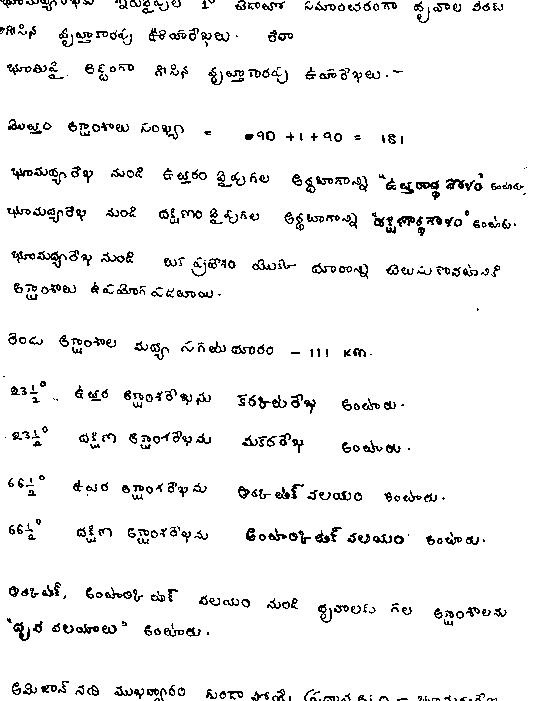 భూమధ్యరేఖకు ఇరువైపుల 1° తేడాతో సమాంతరంగా ధృవాల వరకు
గీసిన వృత్తాకారపు ఊహారేఖలు. లేదా
భూమిపై అడ్డంగా గీసిన వృత్తాకారపు ఊహారేఖలు.-
మొత్తం అక్షాంశాలు సంఖ్య = 90 + 1 + 90 = 181
భూమధ్యరేఖ నుండి ఉత్తరం వైపుగల అర్థభాగాన్ని "ఉత్తరార్థ గోళం" అంటారు.
భూమధ్యరేఖ నుండి దక్షిణం వైపుగల అర్థభాగాన్ని "దక్షిణార్థగోళం" అంటారు.
భూమధ్యరేఖ నుండి ఒక ప్రదేశం యొక్క దూరాన్ని తెలుసుకొనటానికి
అక్షాంశాలు ఉపయోగపడతాయి.
రెండు అక్షాంశాల మధ్య సగటుదూరం - 111 km.
23½° ఉత్తర అక్షాంశరేఖను కర్కటరేఖ అంటారు.
23½° దక్షిణ అక్షాంశరేఖను మకరరేఖ అంటారు.
66½° ఉత్తర అక్షాంశరేఖను ఆర్కిటిక్ వలయం అంటారు.
66½° దక్షిణ అక్షాంశరేఖను అంటార్కిటిక్ వలయం అంటారు.
ఆర్కిటిక్, అంటార్కిటిక్ వలయం నుండి ధృవాలకు గల అక్షాంశాలను
"ధృవ వలయాలు" అంటారు.
అమెజాన్ నది ముఖద్వారం గుండా పోయే